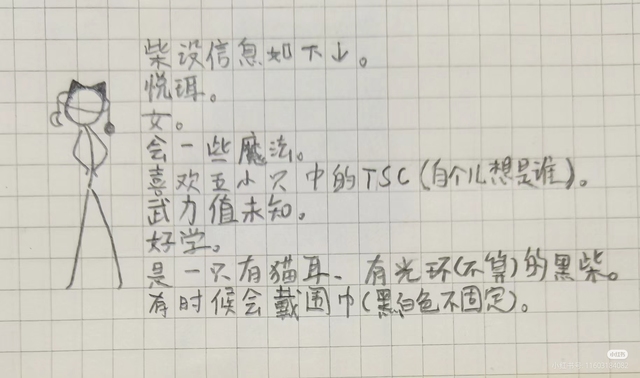 柴设信息如下↓。
悦珥。
女。
会一些魔法。
喜欢五小只中的TSC(自个儿想是谁)。
武力值未知。
好学。
是一只有猫耳、有光环(不算)的黑柴。
有时候会戴围巾(黑白色不固定)。
小红书